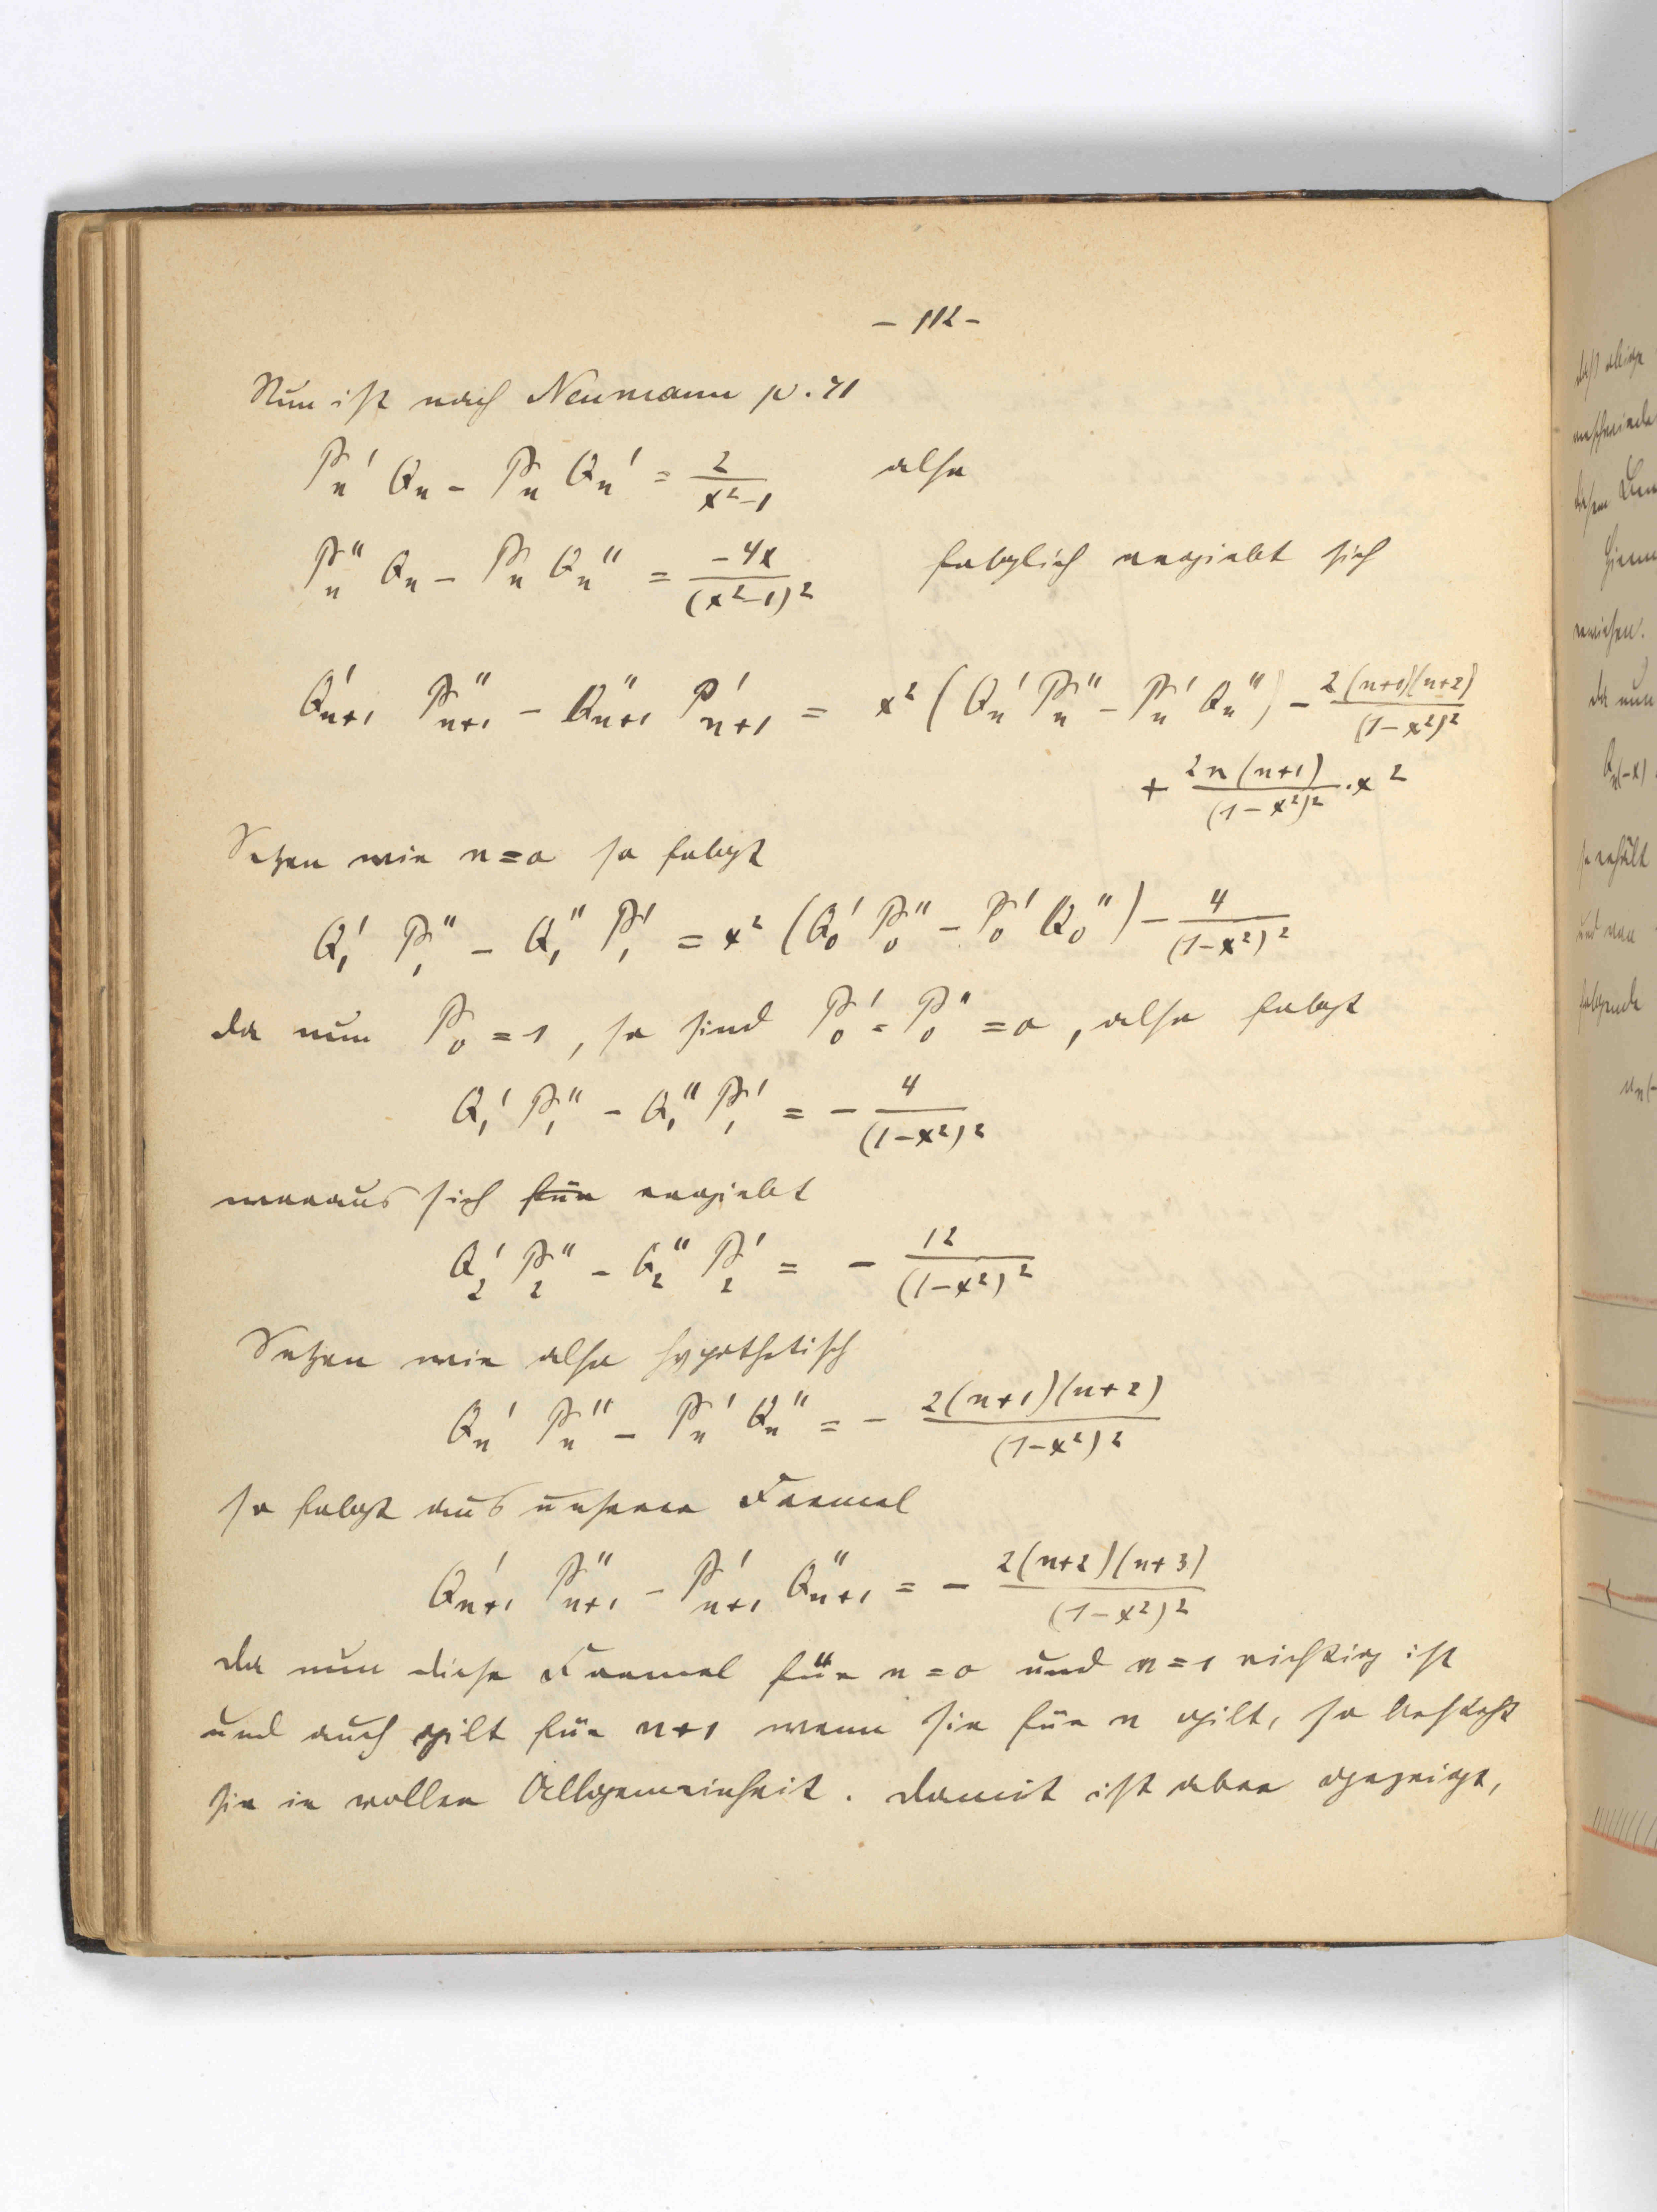 - 112 -
Nun ist nach Neumann p. 71
P_n' Q_n - P_n Q_n' = 2/(x²-1) also
P_n'' Q_n - P_n Q_n'' = -4x/(x²-1)² folglich ergiebt sich
Q'_{n+1} P''_{n+1} - Q''_{n+1} P'_{n+1} = x² (Q_n' P_n'' - P_n' Q_n'') - 2(n+1)(n+2)/(1-x²)²
+ 2n(n+1)/(1-x²)² · x²
Setzen wir n=0 so folgt
Q_1' P_1'' - Q_1'' P_1' = x² (Q_0' P_0'' - P_0' Q_0'') - 4/(1-x²)²
da nun P_0 = 1, so sind P_0' = P_0'' = 0, also folgt
Q_1' P_1'' - Q_1'' P_1' = - 4/(1-x²)²
woraus sich für ergiebt
Q_2' P_2'' - Q_2'' P_2' = - 12/(1-x²)²
Setzen wir also hypothetisch
Q_n' P_n'' - P_n' Q_n'' = - 2(n+1)(n+2)/(1-x²)²
so folgt aus unserer Formel
Q'_{n+1} P''_{n+1} - P'_{n+1} Q''_{n+1} = - 2(n+2)(n+3)/(1-x²)²
da nun diese Formel für n=0 und n=1 richtig ist
und auch gilt für n+1 wenn sie für n gilt, so besteht
sie in voller Allgemeinheit. Damit ist aber gezeigt,